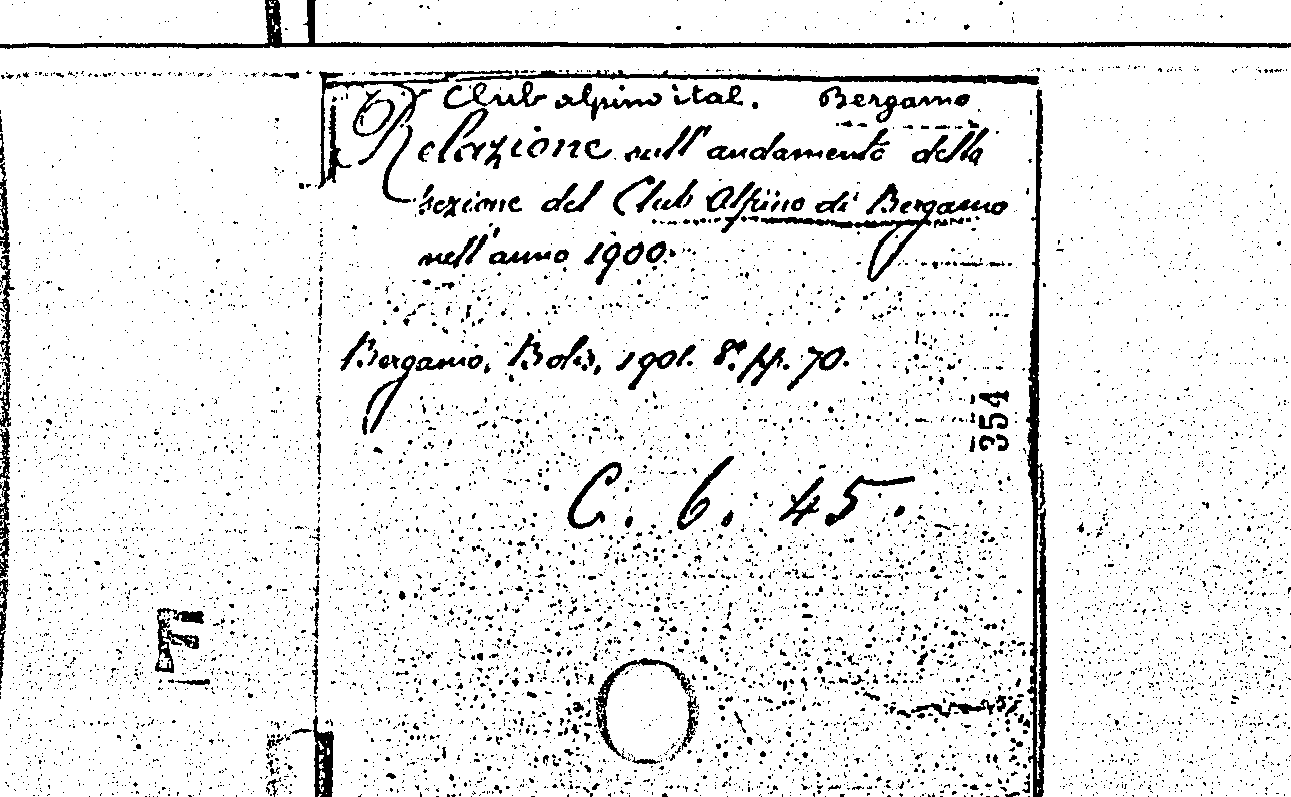 Club alpino ital. Bergamo
Relazione sull'andamento della
sezione del Club Alpino di Bergamo
nell'anno 1900.
Bergamo, Bolis, 1901. 8.° pp. 70.
354
C. 6. 45.
F